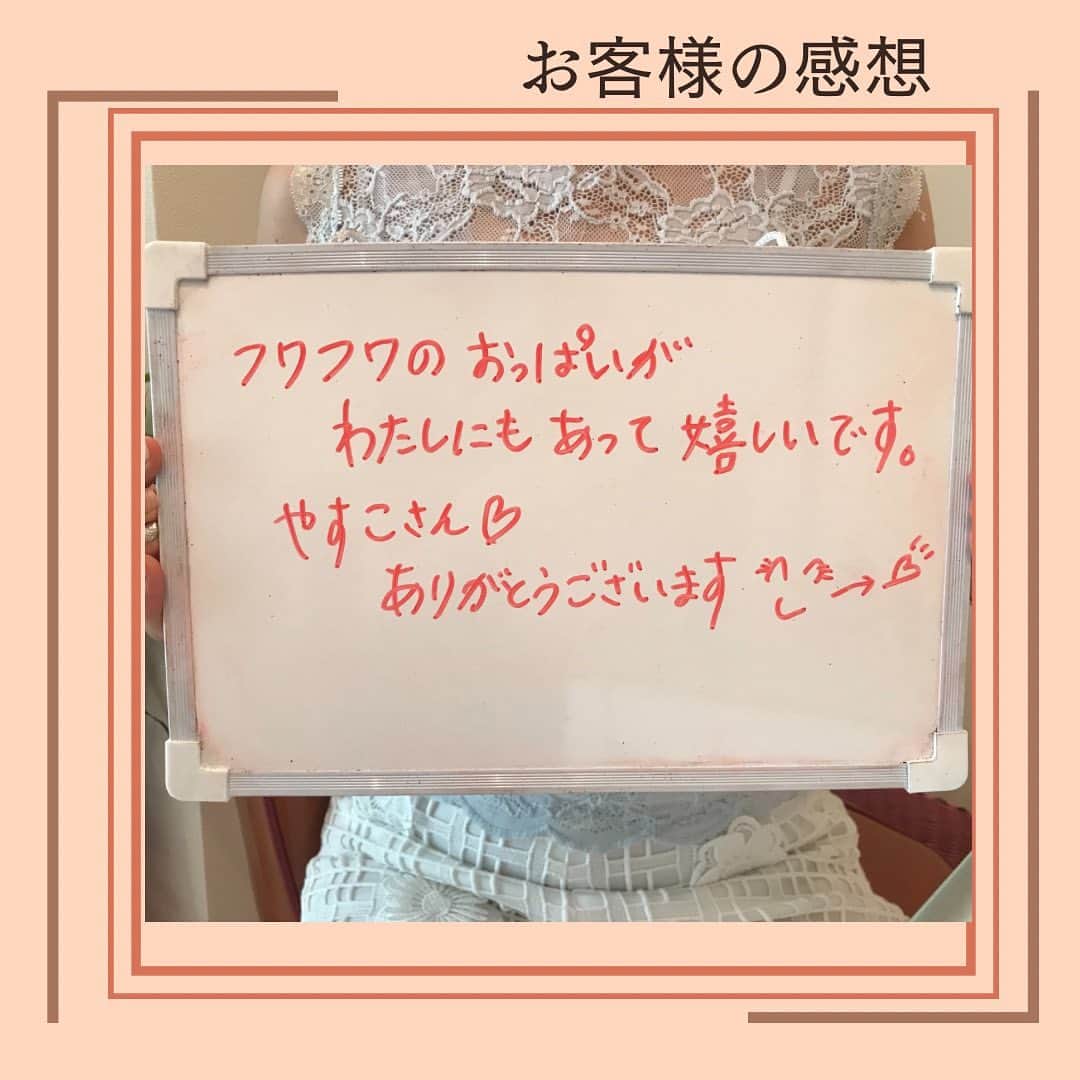 お客様の感想
フワフワの おっぱいが
わたしにも あって 嬉しいです。
やすこさん♡
ありがとうございます